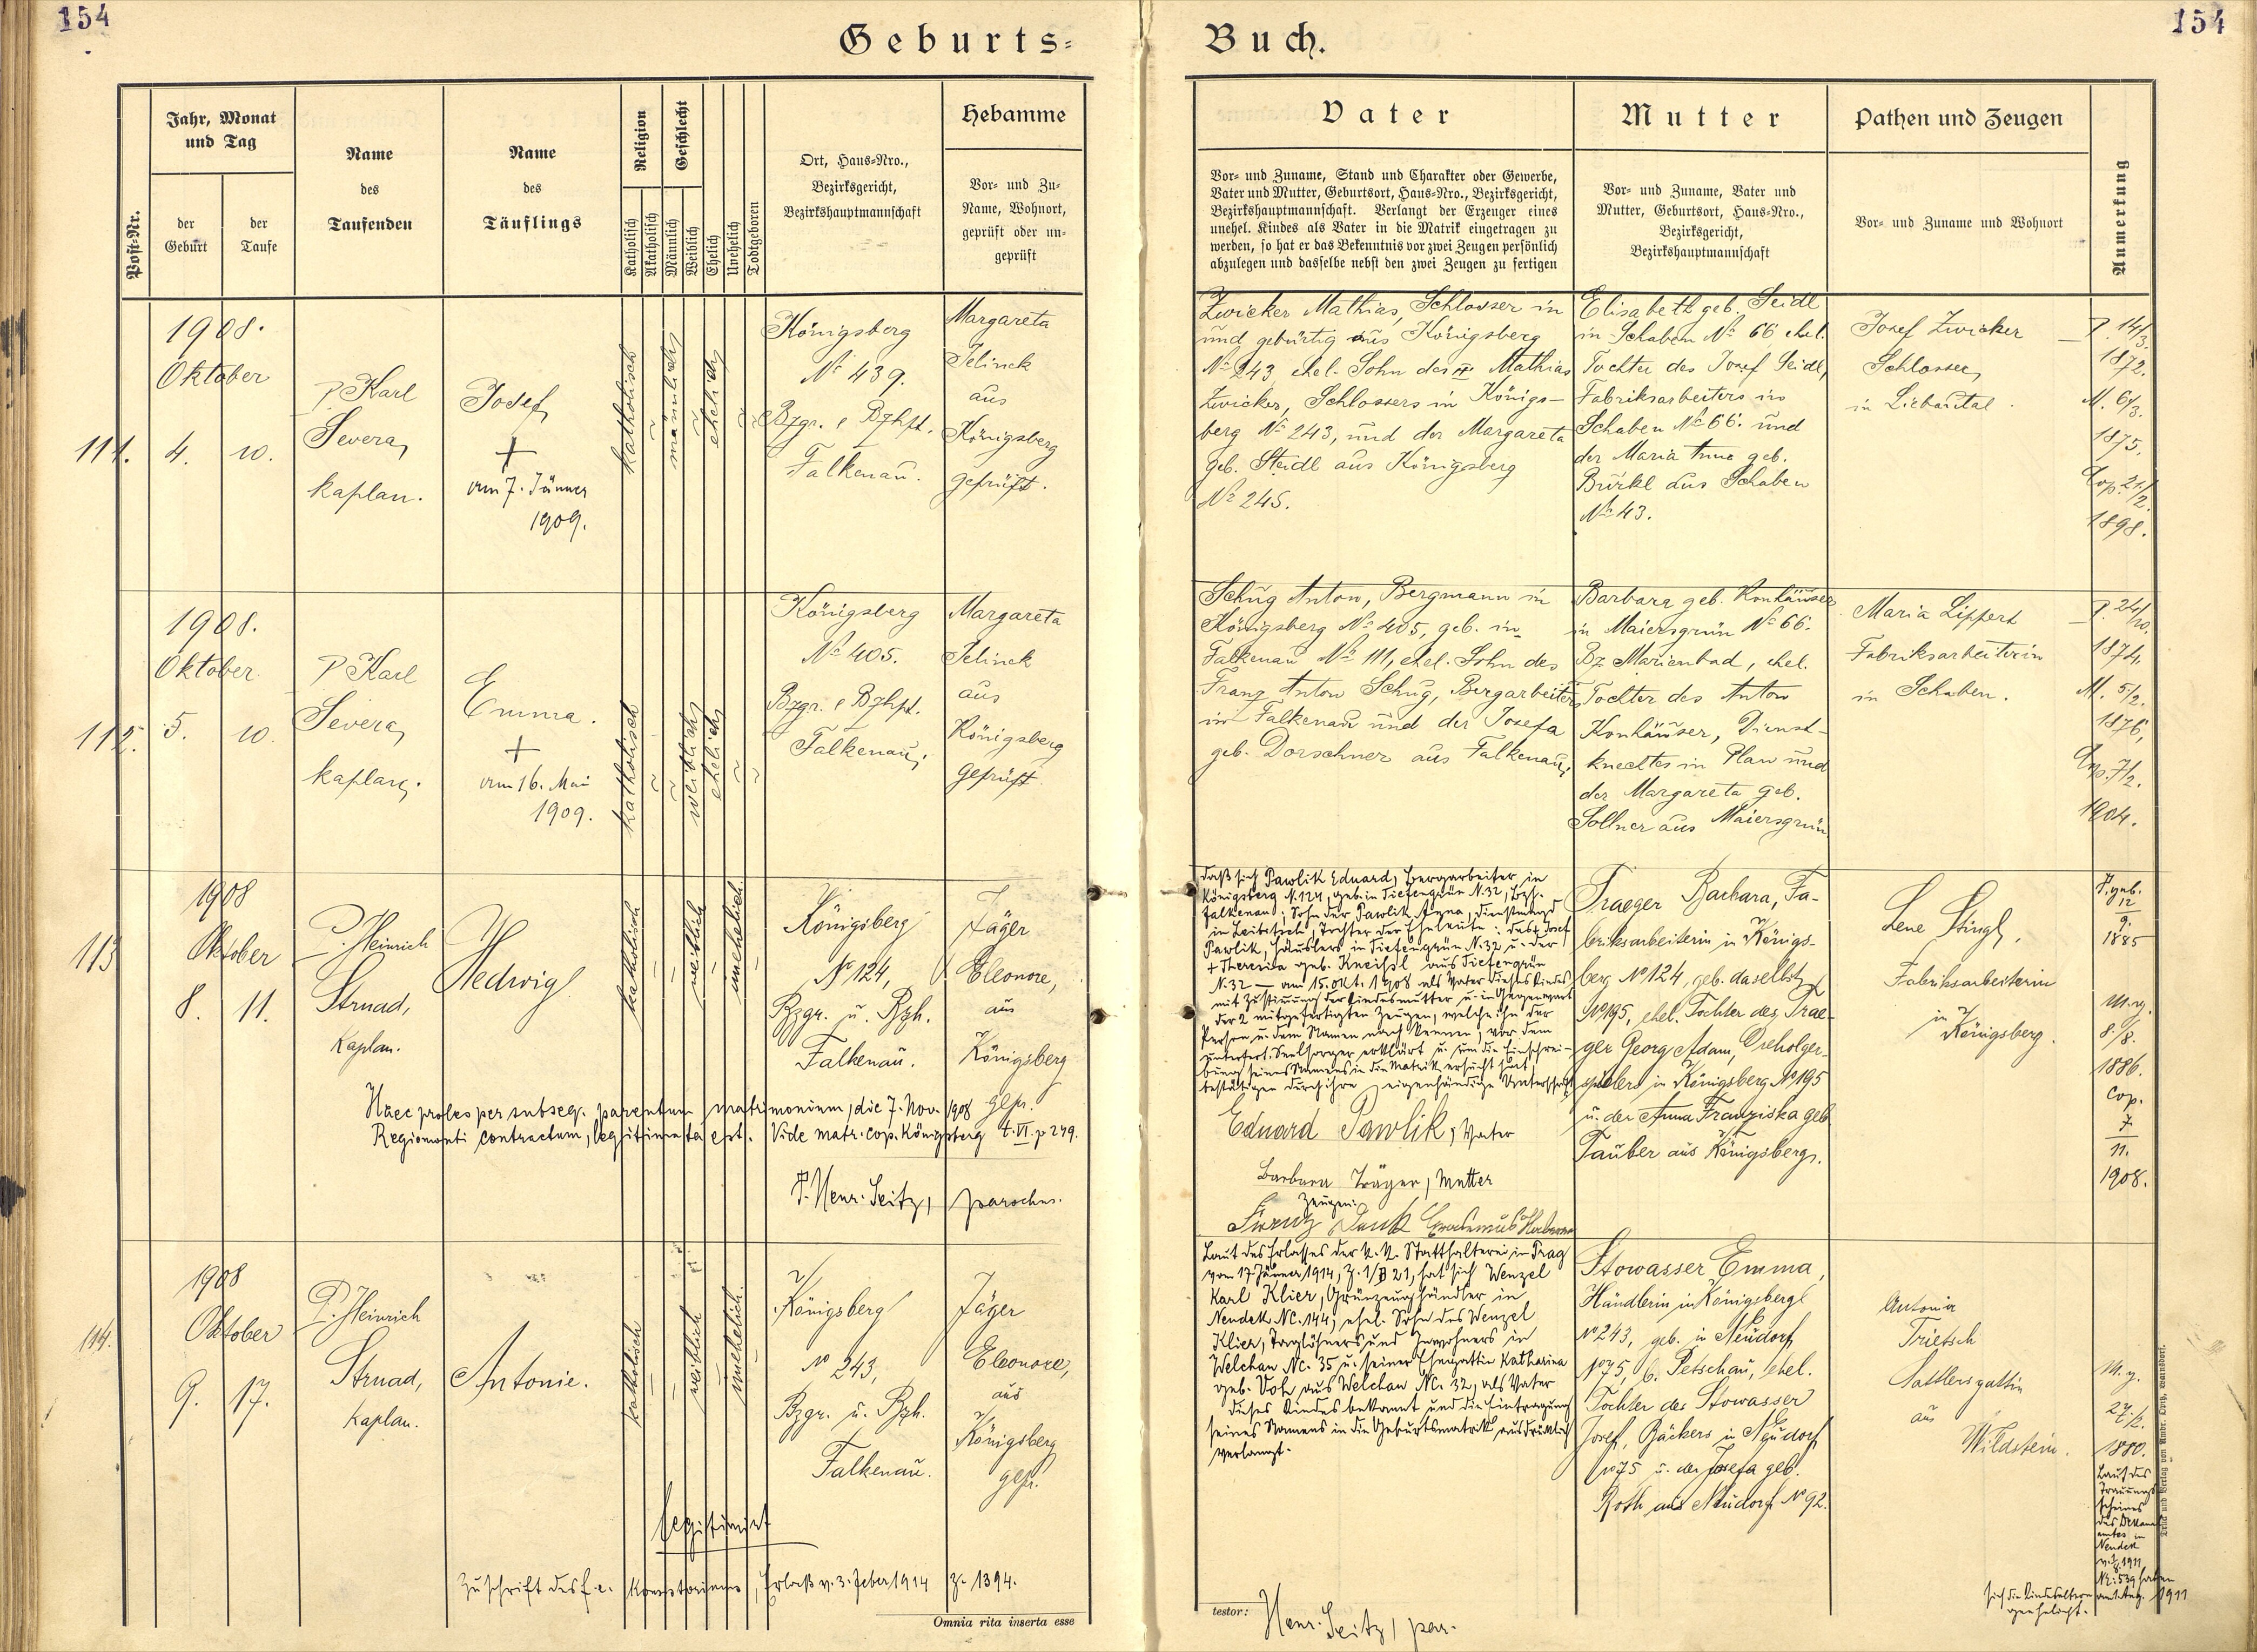 154
Geburts=
Buch.
154
Post-Nr.
Jahr, Monat
und Tag
der
Geburt
der
Taufe
Name
des
Taufenden
Name
des
Täuflings
Religion
Katholisch
Akatholisch
Geschlecht
Männlich
Weiblich
Ehelich
Unehelich
Todtgeboren
Ort, Haus=Nro.,
Bezirksgericht,
Bezirkshauptmannschaft
Hebamme
Vor= und Zu=
Name, Wohnort,
geprüft oder un=
geprüft
Vater
Vor= und Zuname, Stand und Charakter oder Gewerbe,
Vater und Mutter, Geburtsort, Haus=Nro., Bezirksgericht,
Bezirkshauptmannschaft. Verlangt der Erzeuger eines
unehel. Kindes als Vater in die Matrik eingetragen zu
werden, so hat er das Bekenntnis vor zwei Zeugen persönlich
abzulegen und dasselbe nebst den zwei Zeugen zu fertigen
Mutter
Vor= und Zuname, Vater und
Mutter, Geburtsort, Haus=Nro.,
Bezirksgericht,
Bezirkshauptmannschaft
Pathen und Zeugen
Vor= und Zuname und Wohnort
Anmerkung
111.
1908.
Oktober
4. 10.
P Karl
Severa,
kaplan.
Josef
+
am 7. Jänner
1909.
katholisch
männlich
ehelich
Königsberg
No 439.
Bzgr. & Bzhpt.
Falkenau.
Margareta
Jelinek
aus
Königsberg
geprüft.
Zwicker Mathias, Schlosser in
und gebürtig aus Königsberg
No 243, ehel. Sohn des Mathias
Zwicker, Schlossers in Königs-
berg No 243, und der Margareta
geb. Steidl aus Königsberg
No 245.
Elisabeth geb. Seidl
in Schaben No 66 ehel.
Tochter des Josef Seidl,
Fabriksarbeiters in
Schaben No 66. und
der Maria Anna geb.
Bürkl aus Schaben
No 43.
Josef Zwicker
Schlosser,
in Liebautal.
P. 14/3.
1872.
M. 6/3.
1875.
Cop. 21/2.
1898.
112.
1908.
Oktober.
5. 10
P Karl
Severa,
kaplan.
Emma.
+
am 16. Mai
1909.
katholisch
weiblich
ehelich
Königsberg
No 405.
Bzgr. & Bzhpt.
Falkenau,
Margareta
Jelinek
aus
Königsberg
geprüft.
Schug Anton, Bergmann in
Königsberg No 405, geb. in
Falkenau No 111, ehel. Sohn des
Franz Anton Schug, Bergarbeiters
in Falkenau und der Josefa
geb. Dorschner aus Falkenau,
Barbara geb. Konhäuser
in Maiersgrün No 66.
Bz Marienbad, ehel.
Tochter des Anton
Konhäuser, Dienst-
knechtes in Plan und
der Margareta geb.
Sollner aus Maiersgrün
Maria Lippert
Fabriksarbeiterin
in Schaben.
P. 24/10.
1874.
M. 5/2.
1876,
Cop. 7/2.
1904.
113
1908
Oktober
8. 11.
P. Heinrich
Strnad,
Kaplan.
Hedwig
katholisch
weiblich
unehelich
Königsberg
No 124,
Bzgr. u. Bzh.
Falkenau.
Jäger
Eleonore,
aus
Königsberg
gepr.
Haec proles per subseq. parentum matrimonium, die 7. Nov. 1908
Regiomonti contractum, legitimata est. Vide matr. cop. Königsberg t. VI. p 249.
P. Henr. Seitz, parochus.
daß sich Pawlik Eduard, Bergarbeiter in
Königsberg N. 124, geb. in Tiefengrün N. 32, Bzh.
Falkenau; Sohn der Pawlik Anna, Dienstmagd
in Leibitsch, Tochter der Eheleute: des + Josef
Pawlik, Häuslers in Tiefengrün N. 32 u. der
+ Theresia geb. Kneissl aus Tiefengrün
N. 32 — am 15. Okt. 1908 als Vater dieses Kindes
mit Zustimmung der Kindesmutter u. in Gegenwart
der 2 mitgefertigten Zeugen, welche ihn der
Person u. dem Namen nach kennen, vor dem
unterfert. Seelsorger erklärt u. um die Einschrei-
bung seines Namens in die Matrik ersucht hat,
bestätigen durch ihre eigenhändige Unterschrift
Eduard Pawlik, Vater
Barbara Träger, Mutter
Zeugen:
Traeger Barbara, Fa-
briksarbeiterin in Königs-
berg No 124, geb. daselbst
No 195, ehel. Tochter des Trae-
ger Georg Adam,
in Königsberg No 195
u. der Anna Franziska geb.
Tauber aus Königsberg.
Lene Stingl,
Fabriksarbeiterin
in
Königsberg.
P. geb.
12
9.
1885
M. g.
8./8.
1886.
Cop.
7
11.
1908.
114.
1908
Oktober
9. 17.
P. Heinrich
Strnad,
Kaplan.
Antonie.
katholisch
weiblich
unehelich.
Königsberg
No 243,
Bzgr. u. Bzh.
Falkenau.
Jäger
Eleonore,
aus
Königsberg
gepr.
legitimiert
Zuschrift des f. e. Konsistoriums, Erlaß v. 3. Feber 1914 Z. 1394.
Laut des Erlasses der k. k. Statthalterei in Prag
vom 17. Jänner 1914, Z. 1/B 21, hat sich Wenzel
Karl Klier, Grünzeughändler in
Neudek NC. 144, ehel. Sohn des Wenzel
Klier, Taglöhners und Inwohners in
Welchau NC. 35 u. seiner Ehegattin Katharina
geb. Voh aus Welchau NC. 32, als Vater
dieses Kindes bekannt und die Eintragung
seines Namens in die Geburtsmatrik ausdrücklich
verlangt.
Stowasser Emma,
Händlerin in Königsberg
No 243, geb. in Neudorf
No 75, b. Petschau, ehel.
Tochter des Stowasser
Josef, Bäckers in Neudorf
No 75 u. der Josefa geb.
Roth aus Neudorf No 92.
Antonia
Trietsch
Sattlersgattin
aus
Wildstein.
M. g.
27/2.
1880.
Laut des
Trauungs-
scheines
des Dekanal-
amtes in
Neudek
1911
haben
sich die Kindeseltern 1911
geehelicht.
Omnia rita inserta esse
testor:
Henr. Seitz, par.